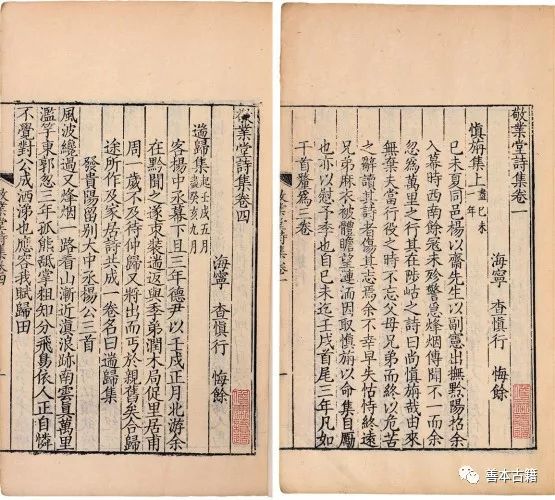 敬業堂詩集卷一
海寧 查慎行 悔餘
慎旃集上 盡己未一年
己未夏同邑楊以齋先生以副憲出撫黔陽招余
入幕時西南餘寇未殄警急烽烟傳聞不一而余
忽爲萬里之行其在陟岵之詩曰尚慎旃哉由來
無棄夫當行役之時不忘父母兄弟而終以危苦
之辭讀其詩者傷其志焉余不幸早失怙恃終遠
兄弟麻衣被體瞻望漣洏因取慎旃以命集自勵
也亦以慰弟也自己未迄壬戌首尾三年凡如
干首釐爲三卷
敬業堂詩集卷一
敬業堂詩集卷四
海寧 查慎行 悔餘
遄歸集 起壬戌五月盡癸亥九月
客楊中丞幕下且三年德尹以壬戌正月北游余
在黔聞之遂束裝遄返與季弟潤木局促里居甫
周一歲不及待仲歸又將出而丐於親舊矣合歸
途所作及家居詩共成一卷名曰遄歸集
發貴陽留別大中丞楊公三首
風波纔過又烽烟一路看山漸近滇浪跡南雲眞萬里
濫竽東郭忽三年孤熊舐掌粗知分飛鳥依人正自憐
不覺對公成洒涕也應容我賦歸田
敬業堂詩集卷四
善本古籍